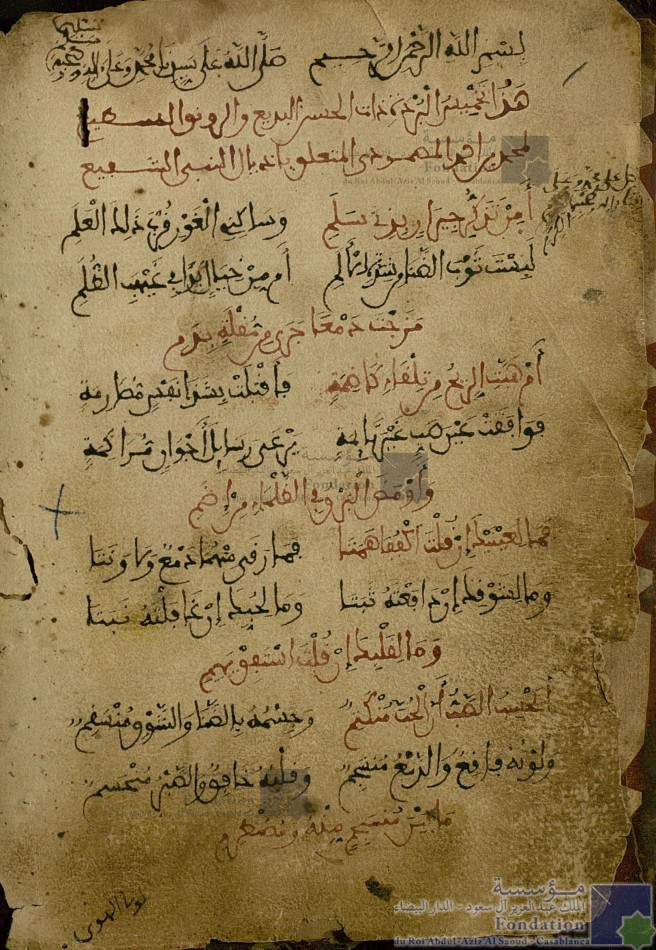 بسم الله الرحمن الرحيم صلى الله على سيدنا محمد وعلى اله وصحبه وسلم تسليما
هذا تخميس البردة ذات الحسن البديع والرونق
المصمودي المتعلق باذيال النبي الشفيع
أمن تذكر جيران بذي سلم وساكني الغور قرب ذلك العلم
لبست ثوب الضنا من شدة الألم أم من خيال بدا في غيهب الظلم
مزجت دمعا جرى من مقلة بدم
أم هبت الريح من تلقاء كاظمة فأقبلت بشذا نفس
فوافقت عين صب غير نايمة يرعى رسايل أخوان
وأومض البرق في الظلماء من إضم
فما لعينيك إن قلت اكففا همتا فما رقى منهما دمع وما ونتا
وما لشوقك إن دافعته ثبتا وما لحبك إن
وما لقلبك إن قلت استفق يهم
أيحسب الصب أن الحب منكتم وجسمه بالضنا والشوق منسقم
ولونه فاقع والدمع منسجم وقلبه خافق والصبر منحسم
ما بين منسجم منه ومضطرم
لولا الهوى
مؤسسة
الملك عبد العزيز آل سعود - الدار البيضاء
Fondation
du Roi Abdul-Aziz Al Saoud - Casablanca